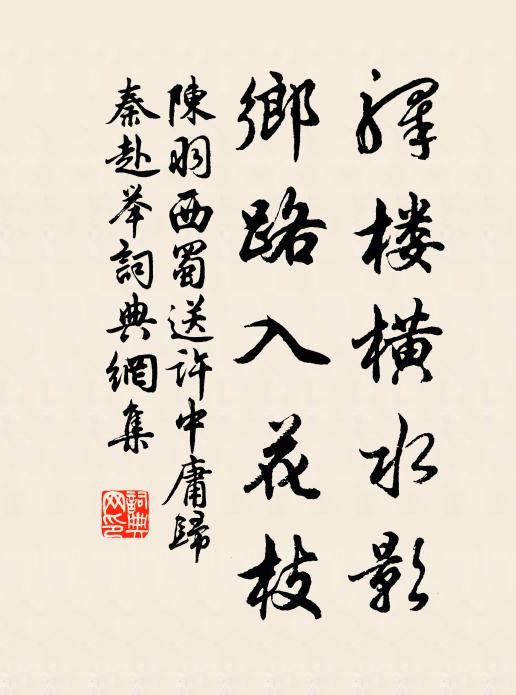 驛楼橫水影
鄉路入花枝
陳羽西蜀送許中庸歸
秦赴举詞典網集
詞典
网印